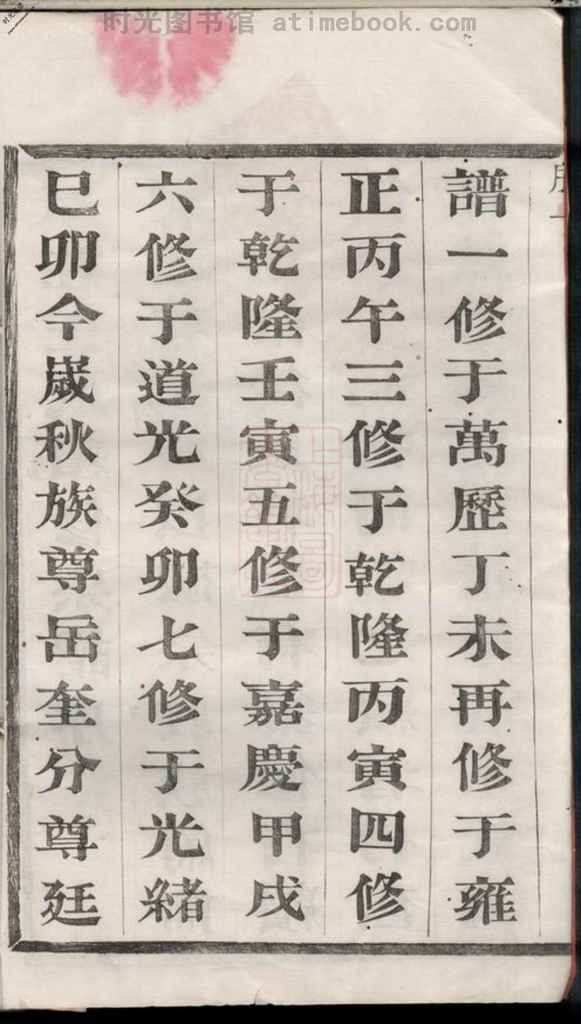 时光图书馆 atimebook.com
譜一修于萬歷丁未再修于雍
正丙午三修于乾隆丙寅四修
于乾隆壬寅五修于嘉慶甲戌
六修于道光癸卯七修于光緒
巳卯今歲秋族尊岳奎分尊廷